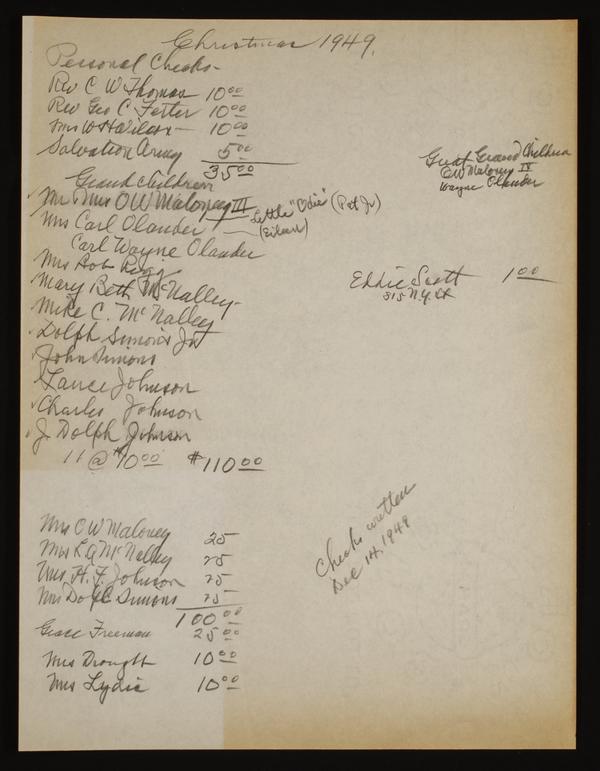 Christmas 1949.
Personal Checks-
Rev C W Thomas 10 00
Rev Geo C Fetter 10 00
Mrs W H Wilson - 10 00
Salvation Army 5 00
35 00
Grand children
Great Grand Children
OW Maloney IV
Wayne Olander
Mr Mrs OW Maloney III
Little "Odie" (Pot Jr)
Mrs Carl Olander - (Eileen)
Carl Wayne Olander
Mrs Bob Rigg
Mary Beth McNalley-
Mike C. McNalley
Eddie Scott 1 00
815 N.Y. St
Dolph Simons Jr
John Simons
Lance Johnson
Charles Johnson
J. Dolph Johnson
11 @ $10 00 $110 00
Mrs OW Maloney 25
Mrs L A McNalley 25
Mrs. H. F. Johnson 25
Mrs Dolph Simons 25
100 00
Grace Freeman 25 00
Mrs Drought 10 00
Mrs Lydic 10 00
Checks written
Dec 14, 1949